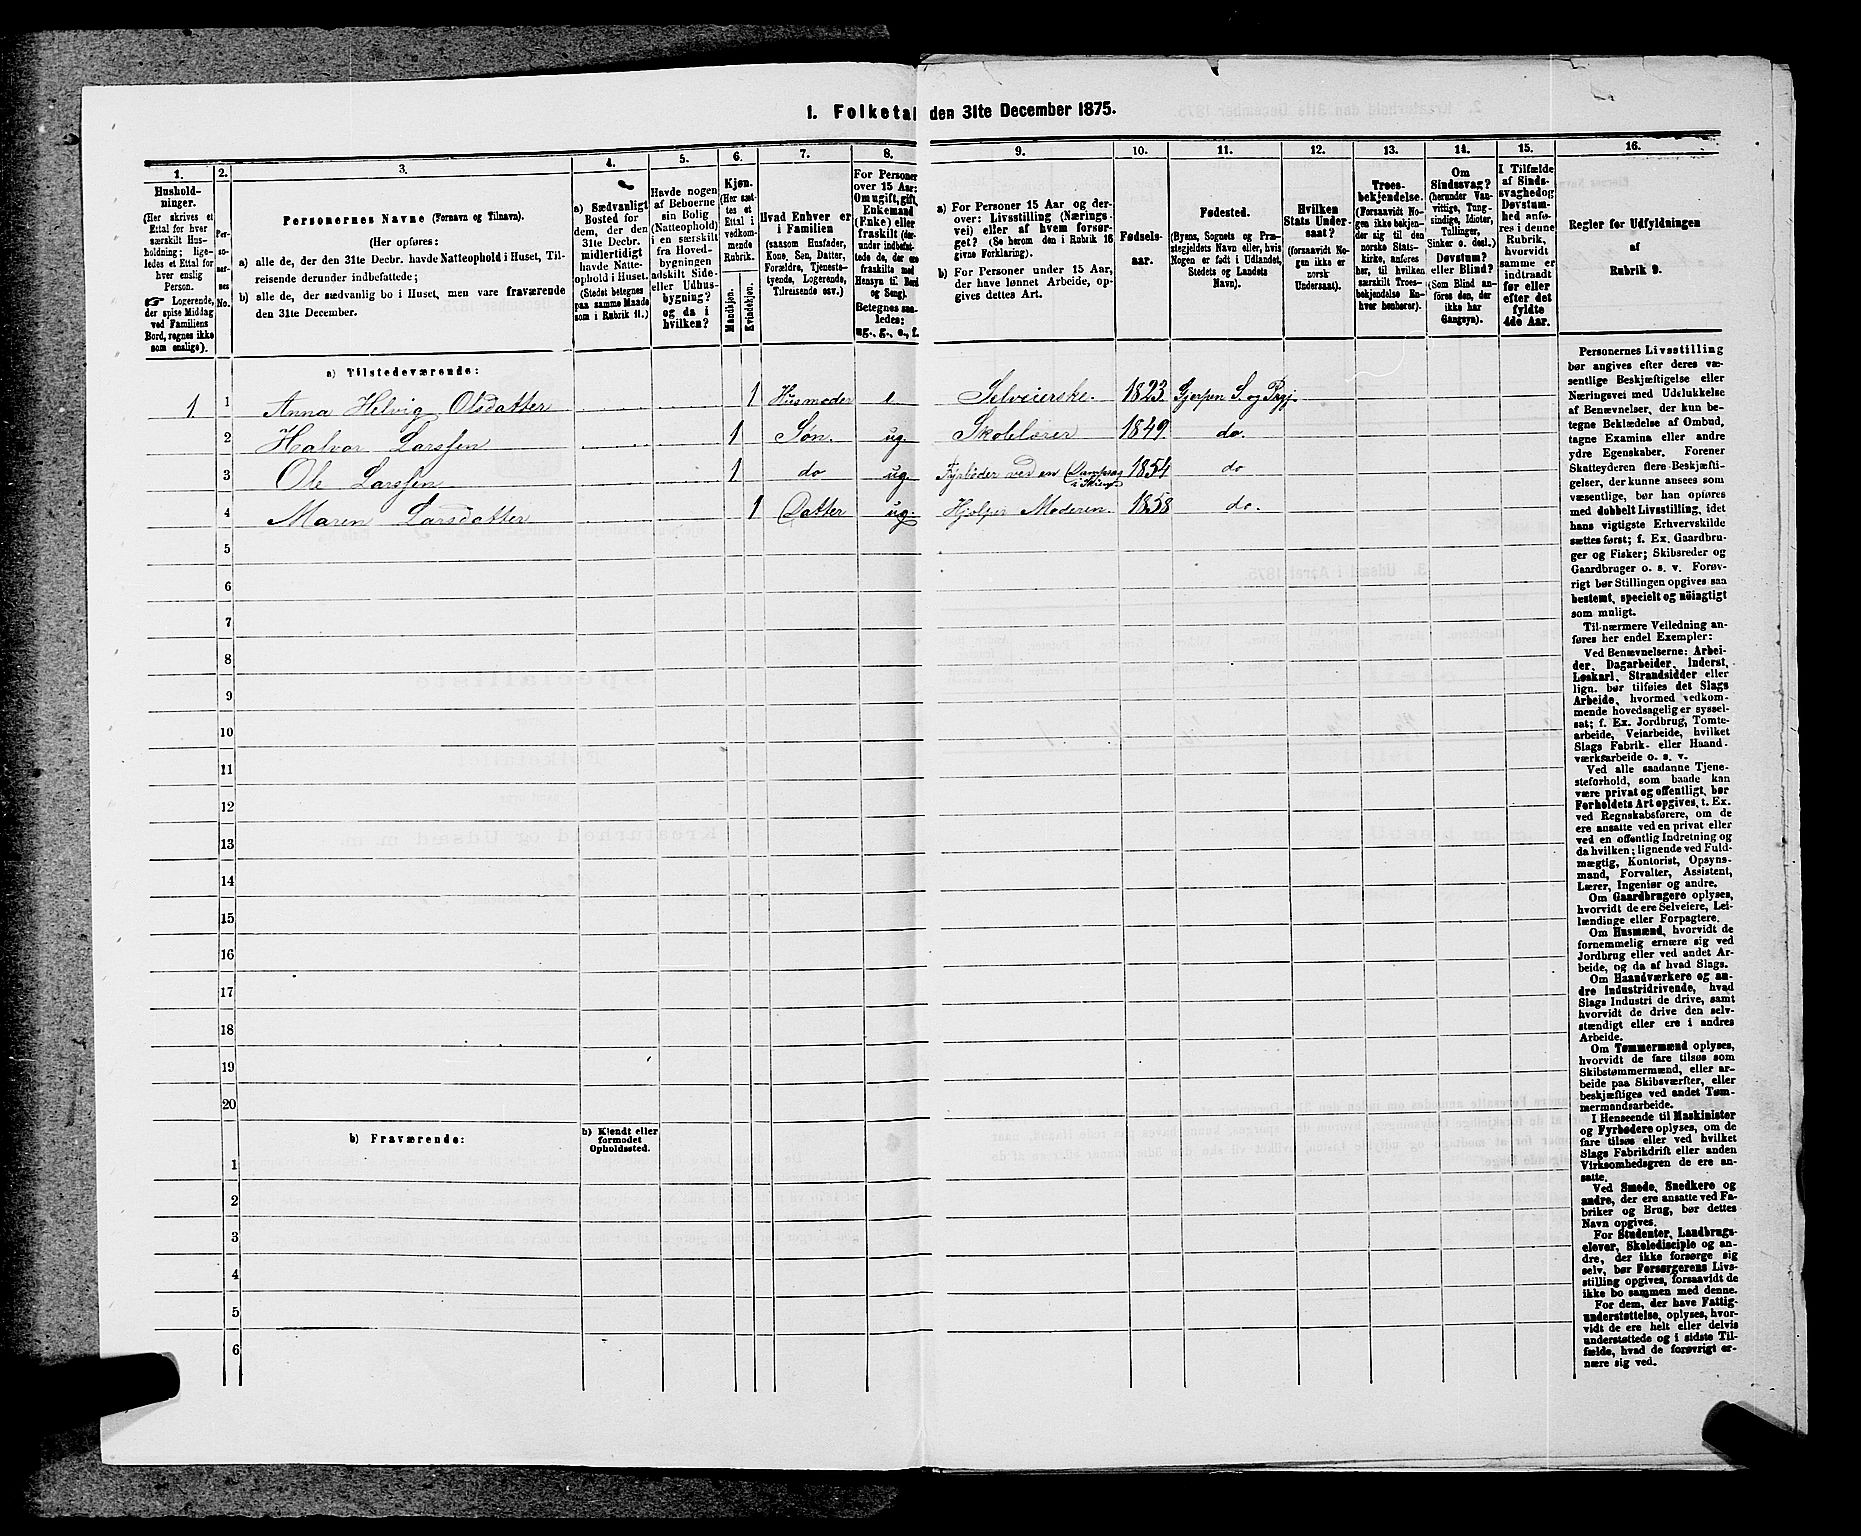 1. Folketal den 31te December 1875.
1.
Hushold-
ninger.
(Her skrives et
Ettal for hver
særskilt Hus-
holdning; lige-
ledes et Ettal for
hver enslig
Person.
☞ Logerende,
der spise Middag
ved Familiens
Bord, regnes ikke
som enslige).
2.
Per-
so-
ner-
nes
No.
3.
Personernes Navne (Fornavn og Tilnavn).
(Her opføres:
a) alle de, der den 31te Decbr. havde Natteophold i Huset, Til-
reisende derunder indbefattede;
b) alle de, der sædvanlig bo i Huset, men vare fraværende
den 31te December.
4.
a) Sædvanligt
Bosted for
dem, der den
31te Decbr.
midlertidigt
havde Natte-
ophold i Huset.
(Stedet betegnes
paa samme Maade
som i Rubrik 11.)
5.
Havde nogen
af Beboerne
sin Bolig
(Natteophold)
i en særskilt
fra Hoved-
bygningen
adskilt Side-
eller Udhus-
bygning?
og da i
hvilken?
6.
Kjøn.
(Her sæt-
tes et
Ettal i
vedkom-
mende
Rubrik.
Mandkjøn.
Kvindekjøn.
7.
Hvad Enhver er
i Familien
(saasom Husfader,
Kone, Søn, Datter,
Forældre, Tjeneste-
tyende, Logerende,
Tilreisende osv.)
8.
For Personer
over 15 Aar:
Om ugift, gift,
Enkemand
(Enke) eller
fraskilt (der-
under indbefat-
tede de, der ere
fraskilte med
Hensyn til Bord
og Seng).
Betegnes saa-
ledes:
ug., g., e., f.
9.
a) For Personer 15 Aar og der-
over: Livsstilling (Nærings-
vei) eller af hvem forsør-
get? (Se herom den i Rubrik 16
givne Forklaring).
b) For Personer under 15 Aar,
der have lønnet Arbeide, op-
gives dettes Art.
10.
Fødsels-
aar.
11.
Fødested.
(Byens, Sognets og Præ-
stegjeldets Navn eller, hvis
Nogen er født i Udlandet,
Stedets og Landets
Navn).
12.
Hvilken
Stats Under-
saat?
(forsaavidt No-
gen ikke er
norsk
Undersaat).
13.
Troes-
bekjendelse.
(Forsaavidt No-
gen ikke bekjen-
der sig til den
norske Stats-
kirke, anføres
her, til hvilken
særskilt Troes-
bekjendelse En-
hver henhører).
14.
Om
Sindssvag?
(herunder Van-
vittige, Tung-
sindige, Idioter,
Tullinger,
Sinker o. desl.)
Døvstum?
eller Blind?
(Som Blind an-
føres den, der
ikke har
Gangsyn).
15.
I Tilfælde
af Sinds-
svaghed og
Døvstum-
hed anfø-
res i denne
Rubrik,
hvorvidt
samme er
indtraadt
før eller
efter det
fyldte
4de Aar.
16.
Regler for Udfyldningen
af
Rubrik 9.
a) Tilstedeværende:
1. 1 Anna Helvig Olsdatter 1 Husmoder e Selveierske. 1823 Gjerpen S. og Prgj.
2 Halvor Larssen 1 Søn. ug. Skolelærer 1849 do.
3 Ole Larssen 1 do ug. Fyrbøder ved en Dampsag i Skien 1854 do
4 Maren Larsdatter 1 Datter ug. Hjelper Moderen. 1858 do.
5
6
7
8
9
10
11
12
13
14
15
16
17
18
19
20
b) Fraværende:
b) Kjendt eller
formodet
Opholdssted.
1
2
3
4
5
6
Personernes Livsstilling
bør angives efter deres væ-
sentlige Beskjæftigelse eller
Næringsvei med Udelukkelse
af Benævnelser, der kun be-
tegne Beklædelse af Ombud,
tagne Examina eller andre
ydre Egenskaber. Forener
Skatteyderen flere Beskjæfti-
gelser, der kunne ansees som
væsentlige, bør han opføres
med dobbelt Livsstilling, idet
hans vigtigste Erhvervskilde
sættes først; f. Ex. Gaardbru-
ger og Fisker; Skibsreder og
Gaardbruger o. s. v. Forøv-
rigt bør Stillingen opgives saa
bestemt, specielt og nöiagtigt
som muligt.
Til nærmere Veiledning an-
føres her endel Exempler:
Ved Benævnelserne: Arbei-
der, Dagarbeider, Inderst,
Løskarl, Strandsidder eller
lign. bør tilføies det Slags
Arbeide, hvormed vedkom-
mende hovedsagelig er syssel-
sat; f. Ex. Jordbrug, Tomte-
arbeide, Veiarbeide, hvilket
Slags Fabrik- eller Haand-
værksarbeide o. s. v.
Ved alle saadanne Tjene-
steforhold, som baade kan
være privat og offentligt, bør
Forholdets Art opgives, t. Ex.
ved Regnskabsførere, om de
ere ansatte ved en privat eller
ved en offentlig Indretning og
da hvilken; lignende ved Fuld-
mægtig, Kontorist, Opsyns-
mand, Forvalter, Assistent,
Lærer, Ingeniør og andre.
Om Gaardbrugere oplyses,
hvorvidt de ere Selveiere, Lei-
lændinge eller Forpagtere.
Om Husmænd, hvorvidt de
fornemmelig ernære sig ved
Jordbrug eller ved andet Ar-
beide, og da af hvad Slags.
Om Haandværkere og an-
dre Industridrivende, hvad
Slags Industri de drive, samt
hvorvidt de drive den selv-
stændigt eller ere i andres
Arbeide.
Om Tømmermænd oplyses,
hvorvidt de fare tilsøs som
Skibstømmermænd, eller ar-
beide paa Skibsværfter, eller
beskjæftiges ved andet Tøm-
mermandsarbeide.
I Henseende til Maskinister
og Fyrbødere oplyses, om de
fare tilsøs eller ved hvilket
Slags Fabrikdrift eller anden
Virksomhedsgren de ere an-
satte.
Ved Smede, Snedkere og
andre, der ere ansatte ved Fa-
briker og Brug, bør dettes
Navn opgives.
For Studenter, Landbrugs-
elever, Skoledisciple og an-
dre, der ikke forsørge sig
selv, bør Forsørgerens Livs-
stilling opgives, forsaavidt de
ikke bo sammen med denne.
For dem, der have Fattig-
understøttelse, oplyses, hvor-
vidt de ere helt eller delvis
understøttede og i sidste Til-
fælde, hvad de forøvrigt er-
nære sig ved.